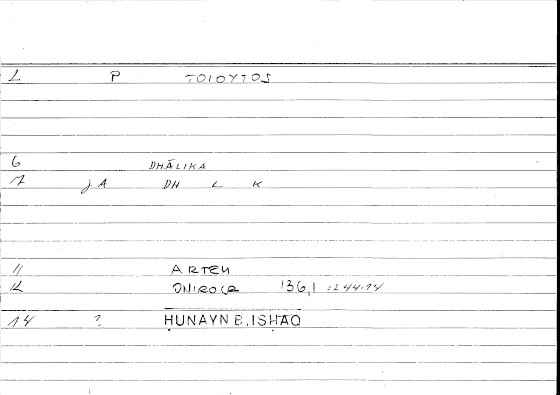 1 P TOIOYTOS
6 DHĀLIKA
7 jA DH L K
11 ARTEM
12 ONIROCR 136,1 :244.14
14 ? ḤUNAYN B. ISḤĀQ